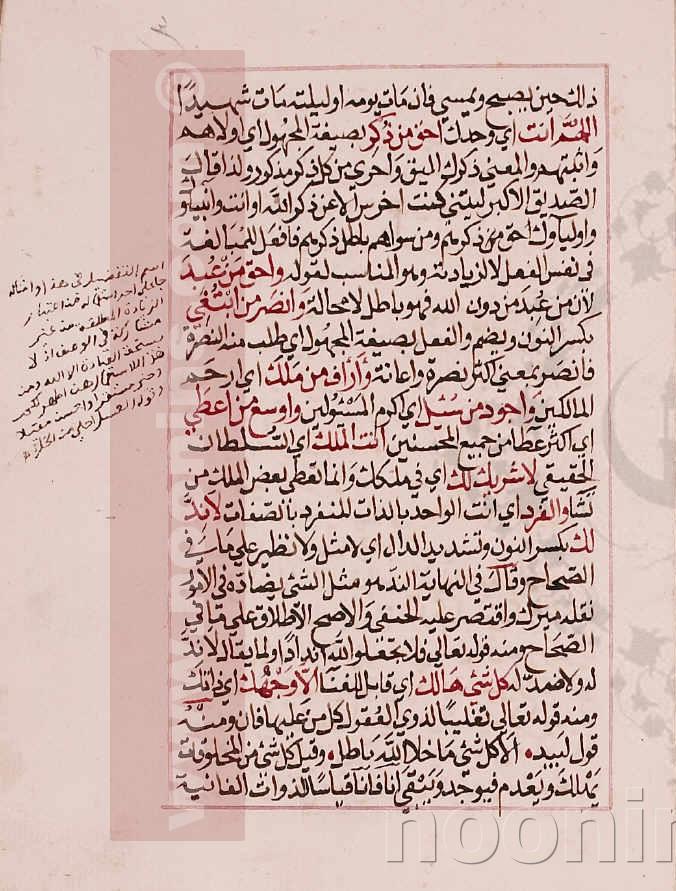 ذلك حين يصبح ويمسي فان مات يومه او ليلته مات شهيدا
اللهم انت اي وحدك احق من ذكر بصيغة المجهول اي اولاهم
واثبتهم والمعنى ذكرك اليق واحرى من كل ذكر مذكور ولذا قال
الصديق الاكبر ليتني كنت اخرس الا عن ذكر الله وانت وانبياؤ
واولياوك احق من ذكرتم ومن سواهم باطل ذكرهم فافعل للمبالغة
في نفس الفعل لا لزيادته وهو المناسب لقوله واحق من عبد
لأن من عبد من دون الله فهو باطل لا محالة وانصر من ابتغي
بكسر النون ويضم والفعل بصيغة المجهول اي طلب منه النصرة
فانصر بمعنى اكثر نصرة واعانة وأرأف من ملك اي رحم
المالكين واجود من سئل اي اكرم المسئولين واوسع من اعطي
اي اكثر عطا من جميع المحسنين انت الملك اي السلطان
الحقيقي لا شريك لك اي في ملكك وانما تعطي بعض الملك من
تشا والفرد اي انت الواحد بالذات المنفرد بالصفات لا ند
لك بكسر النون وتشديد الدال اي لا مثل ولا نظير على ما في
الصحاح وقال في النهاية الند هو مثل الشئ يضاده في الامور
نقله ميرك واقتصر عليه الحنفي والاصح الاطلاق على ما في
الصحاح ومنه قوله تعالى فلا تجعلوا لله اندادا ولما يقال لا ند
له ولا ضد له كل شئ هالك اي قابل للفنا الا وجهك اي ذاتك
ومنه قوله تعالى تغليبا لذوي العقول كل من عليها فان ومنه
قول لبيد الا كل شئ ما خلا الله باطل وقيل كل شئ من المخلوقات
يهلك ويعدم فيوجد ويبقى انا فانا قياسا للذوات الفانية
اسم التفضيل في هذا وامثاله
الزيادة المطلقة من غير
مشاركة في الوصف اذ لا
يستحق العبادة الا الله ومن
noonin